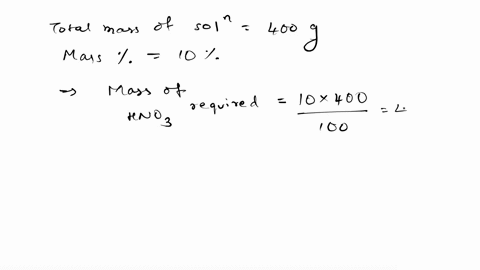 Total mass of solⁿ = 400 g
Mass % = 10 %
→ Mass of HNO₃ required = 10 × 400 / 100 =